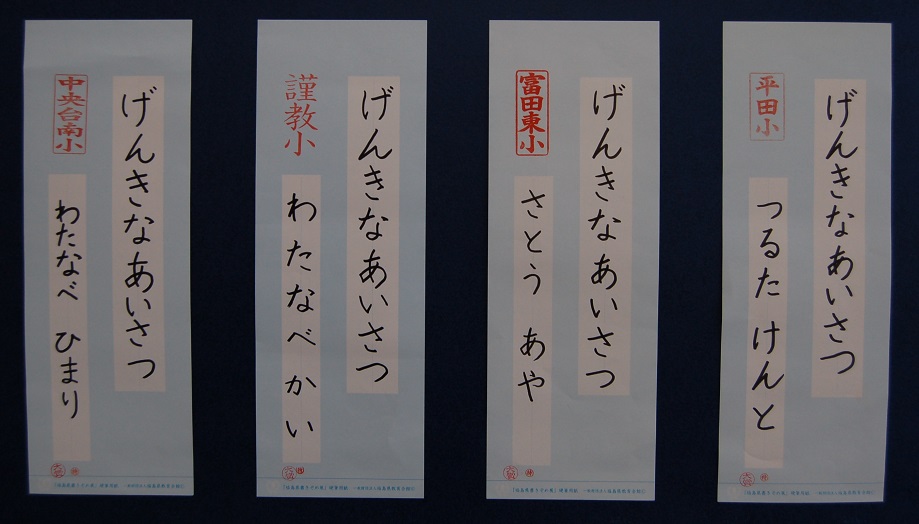 げんきなあいさつ
中央台南小
わたなべ ひまり
げんきなあいさつ
謹教小
わたなべ かい
げんきなあいさつ
富田東小
さとう あや
げんきなあいさつ
平田小
つるた けんと